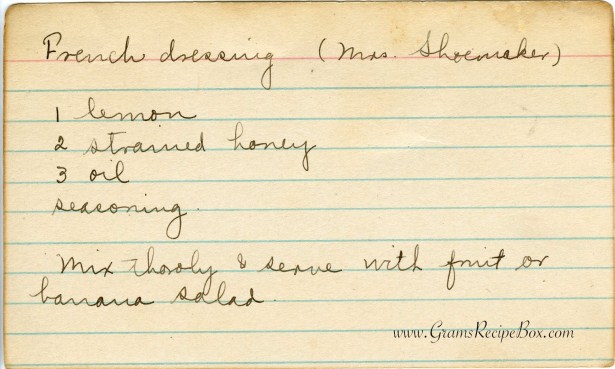 French dressing (Mrs. Shoemaker)
1 lemon
2 strained honey
3 oil
seasoning.
Mix thoroly & serve with fruit or
banana salad.
www.GramsRecipeBox.com